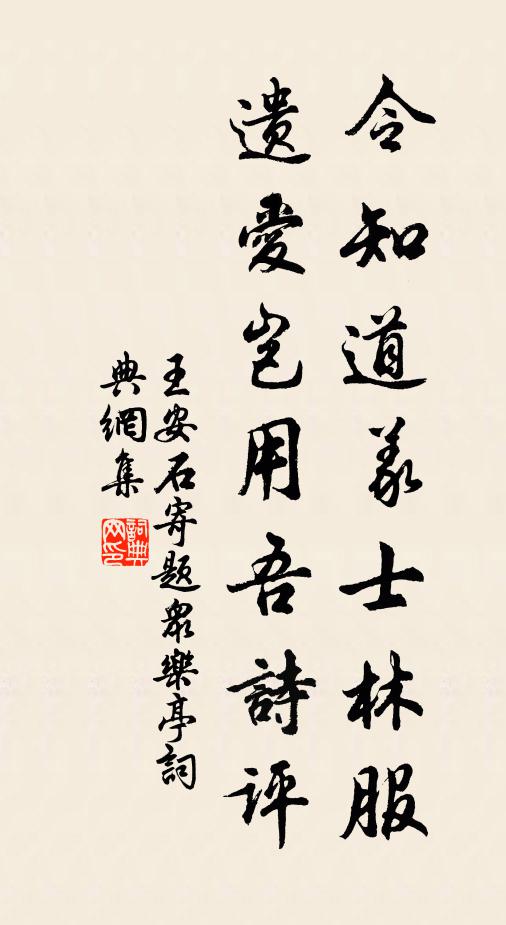 令知道義士林服
遺愛岂用吾詩評
王安石寄题衆樂亭詞
典網集
詞典網印